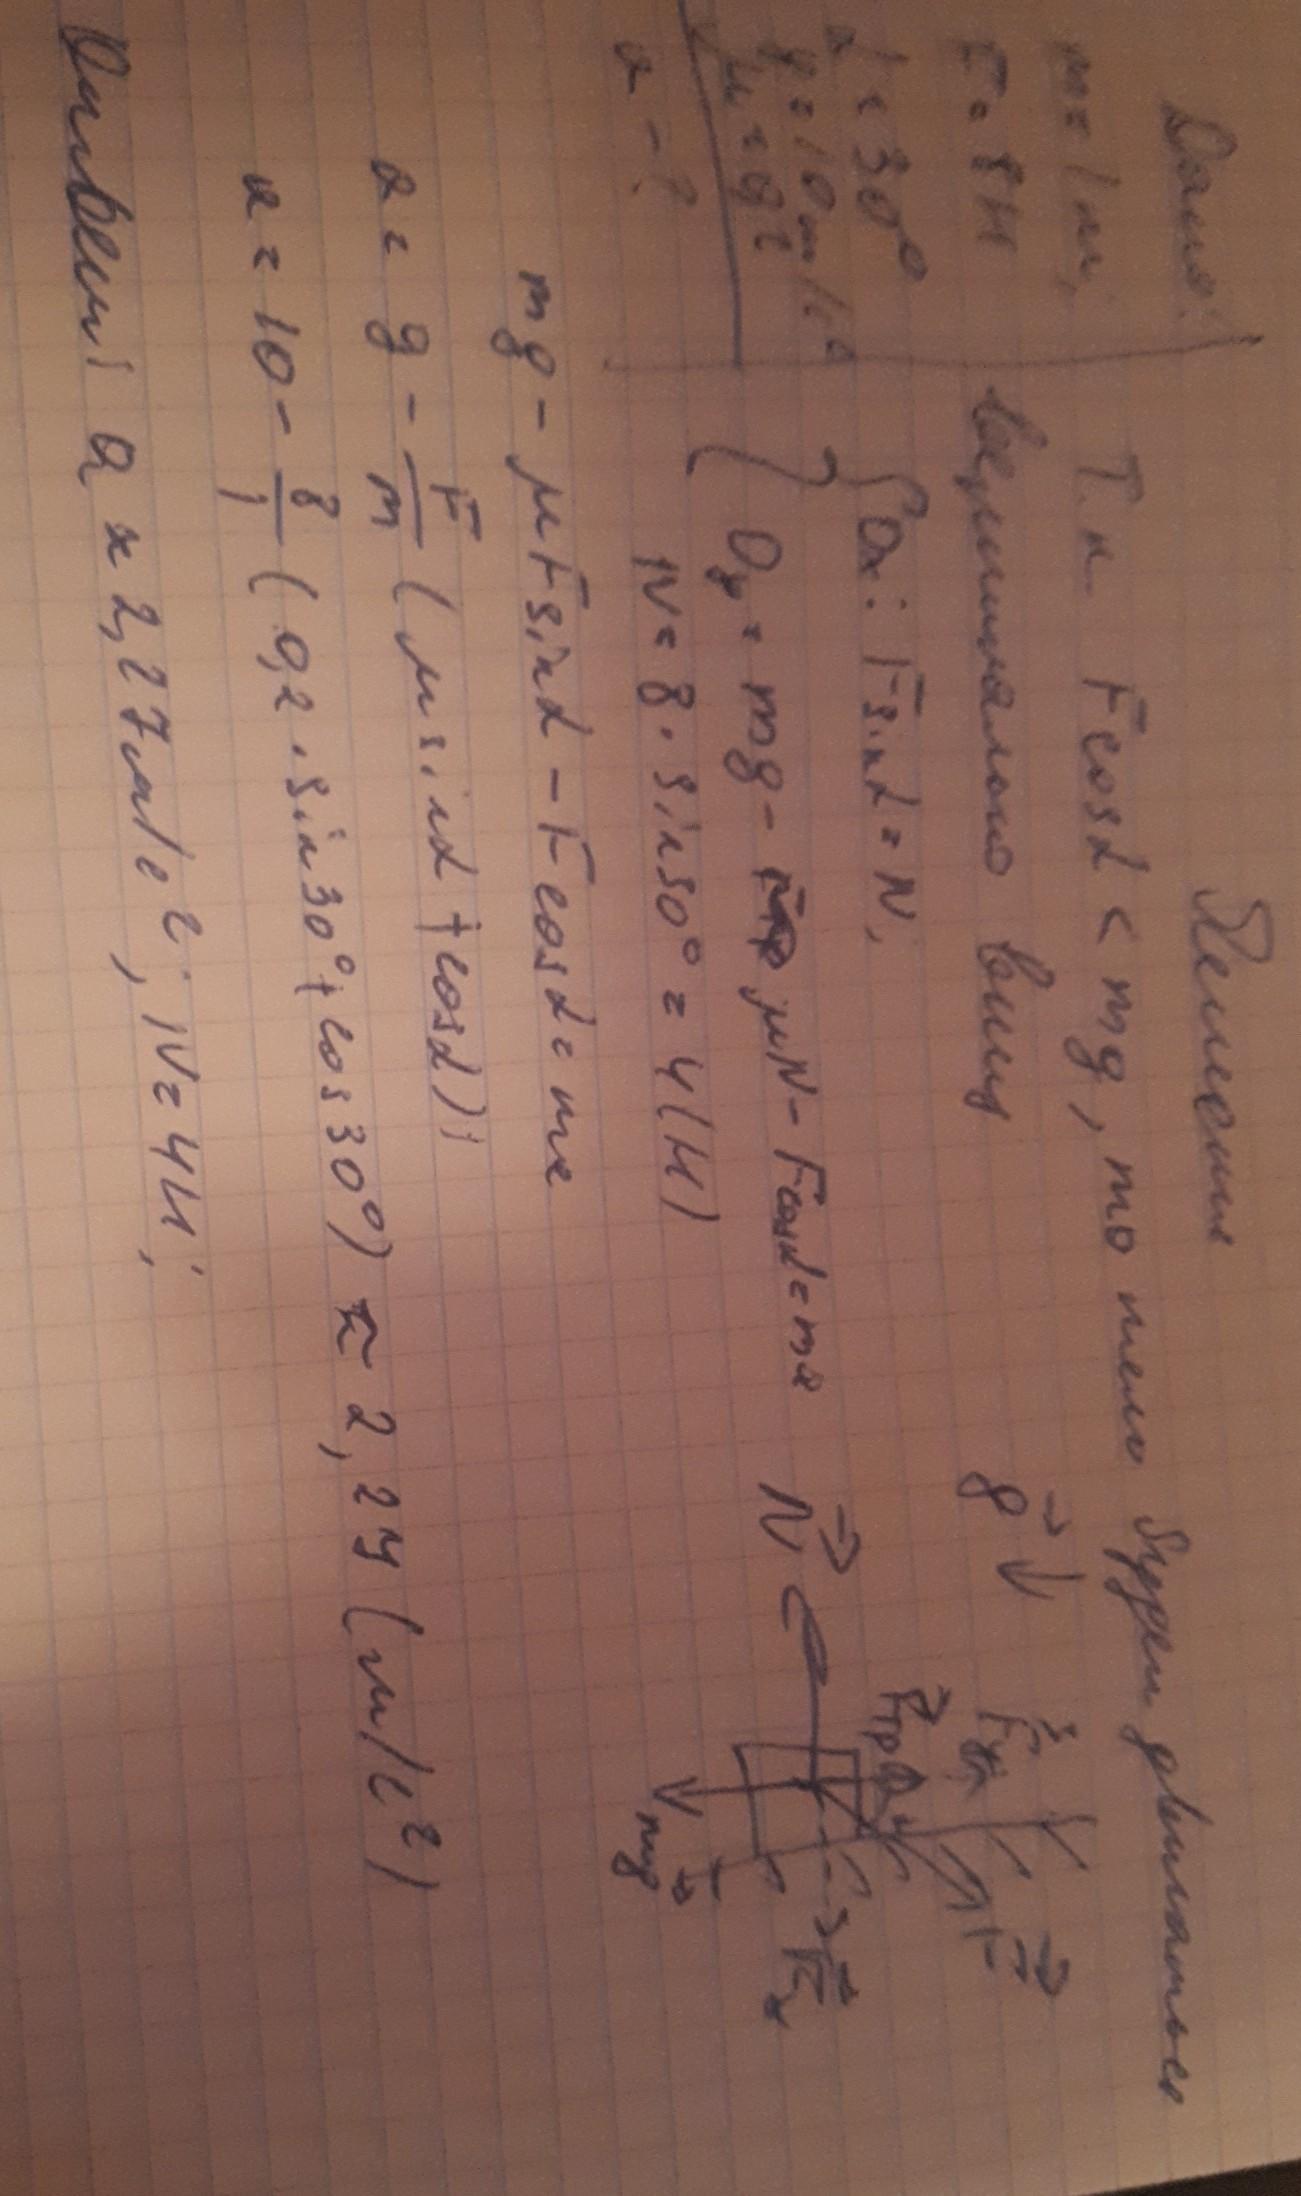 Дано:
m=1кг,
F=8Н
α=30°
g=10м/с²
μ=0,2
a-?
Решение
Т.к. Fcosα<mg, то тело будет двигаться
вертикально вниз
Ox: Fsinα=N,
Oy: mg-μN-Fcosα=ma
N=8·sin30°=4(Н)
mg-μFsinα-Fcosα=ma
a=g-F/m(μsinα+cosα);
a=10-8/1(0,2·sin30°+cos30°)≈2,27(м/с²)
Ответ: a≈2,27м/с²; N=4Н;
g
N
Fтр
Fy
F
Fx
mg